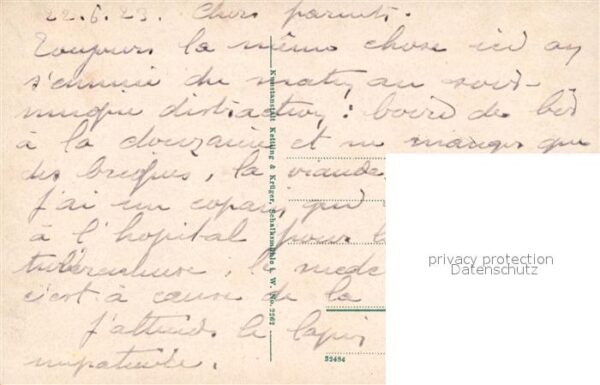 22.6.23. Chers parents.
Toujours la même chose ici on
s'ennuie du matin au soir
unique distraction : boire des
à la douzaine et ne manger que
des , la viande
J'ai un copain qui
à l'hopital pour la
tuberculeuse, le mede
c'est à cause de la
J'attends le
impatience.
Kunstanstalt Kettling & Krüger, Schalksmühle i. W. No. 2262
52484
privacy protection
Datenschutz